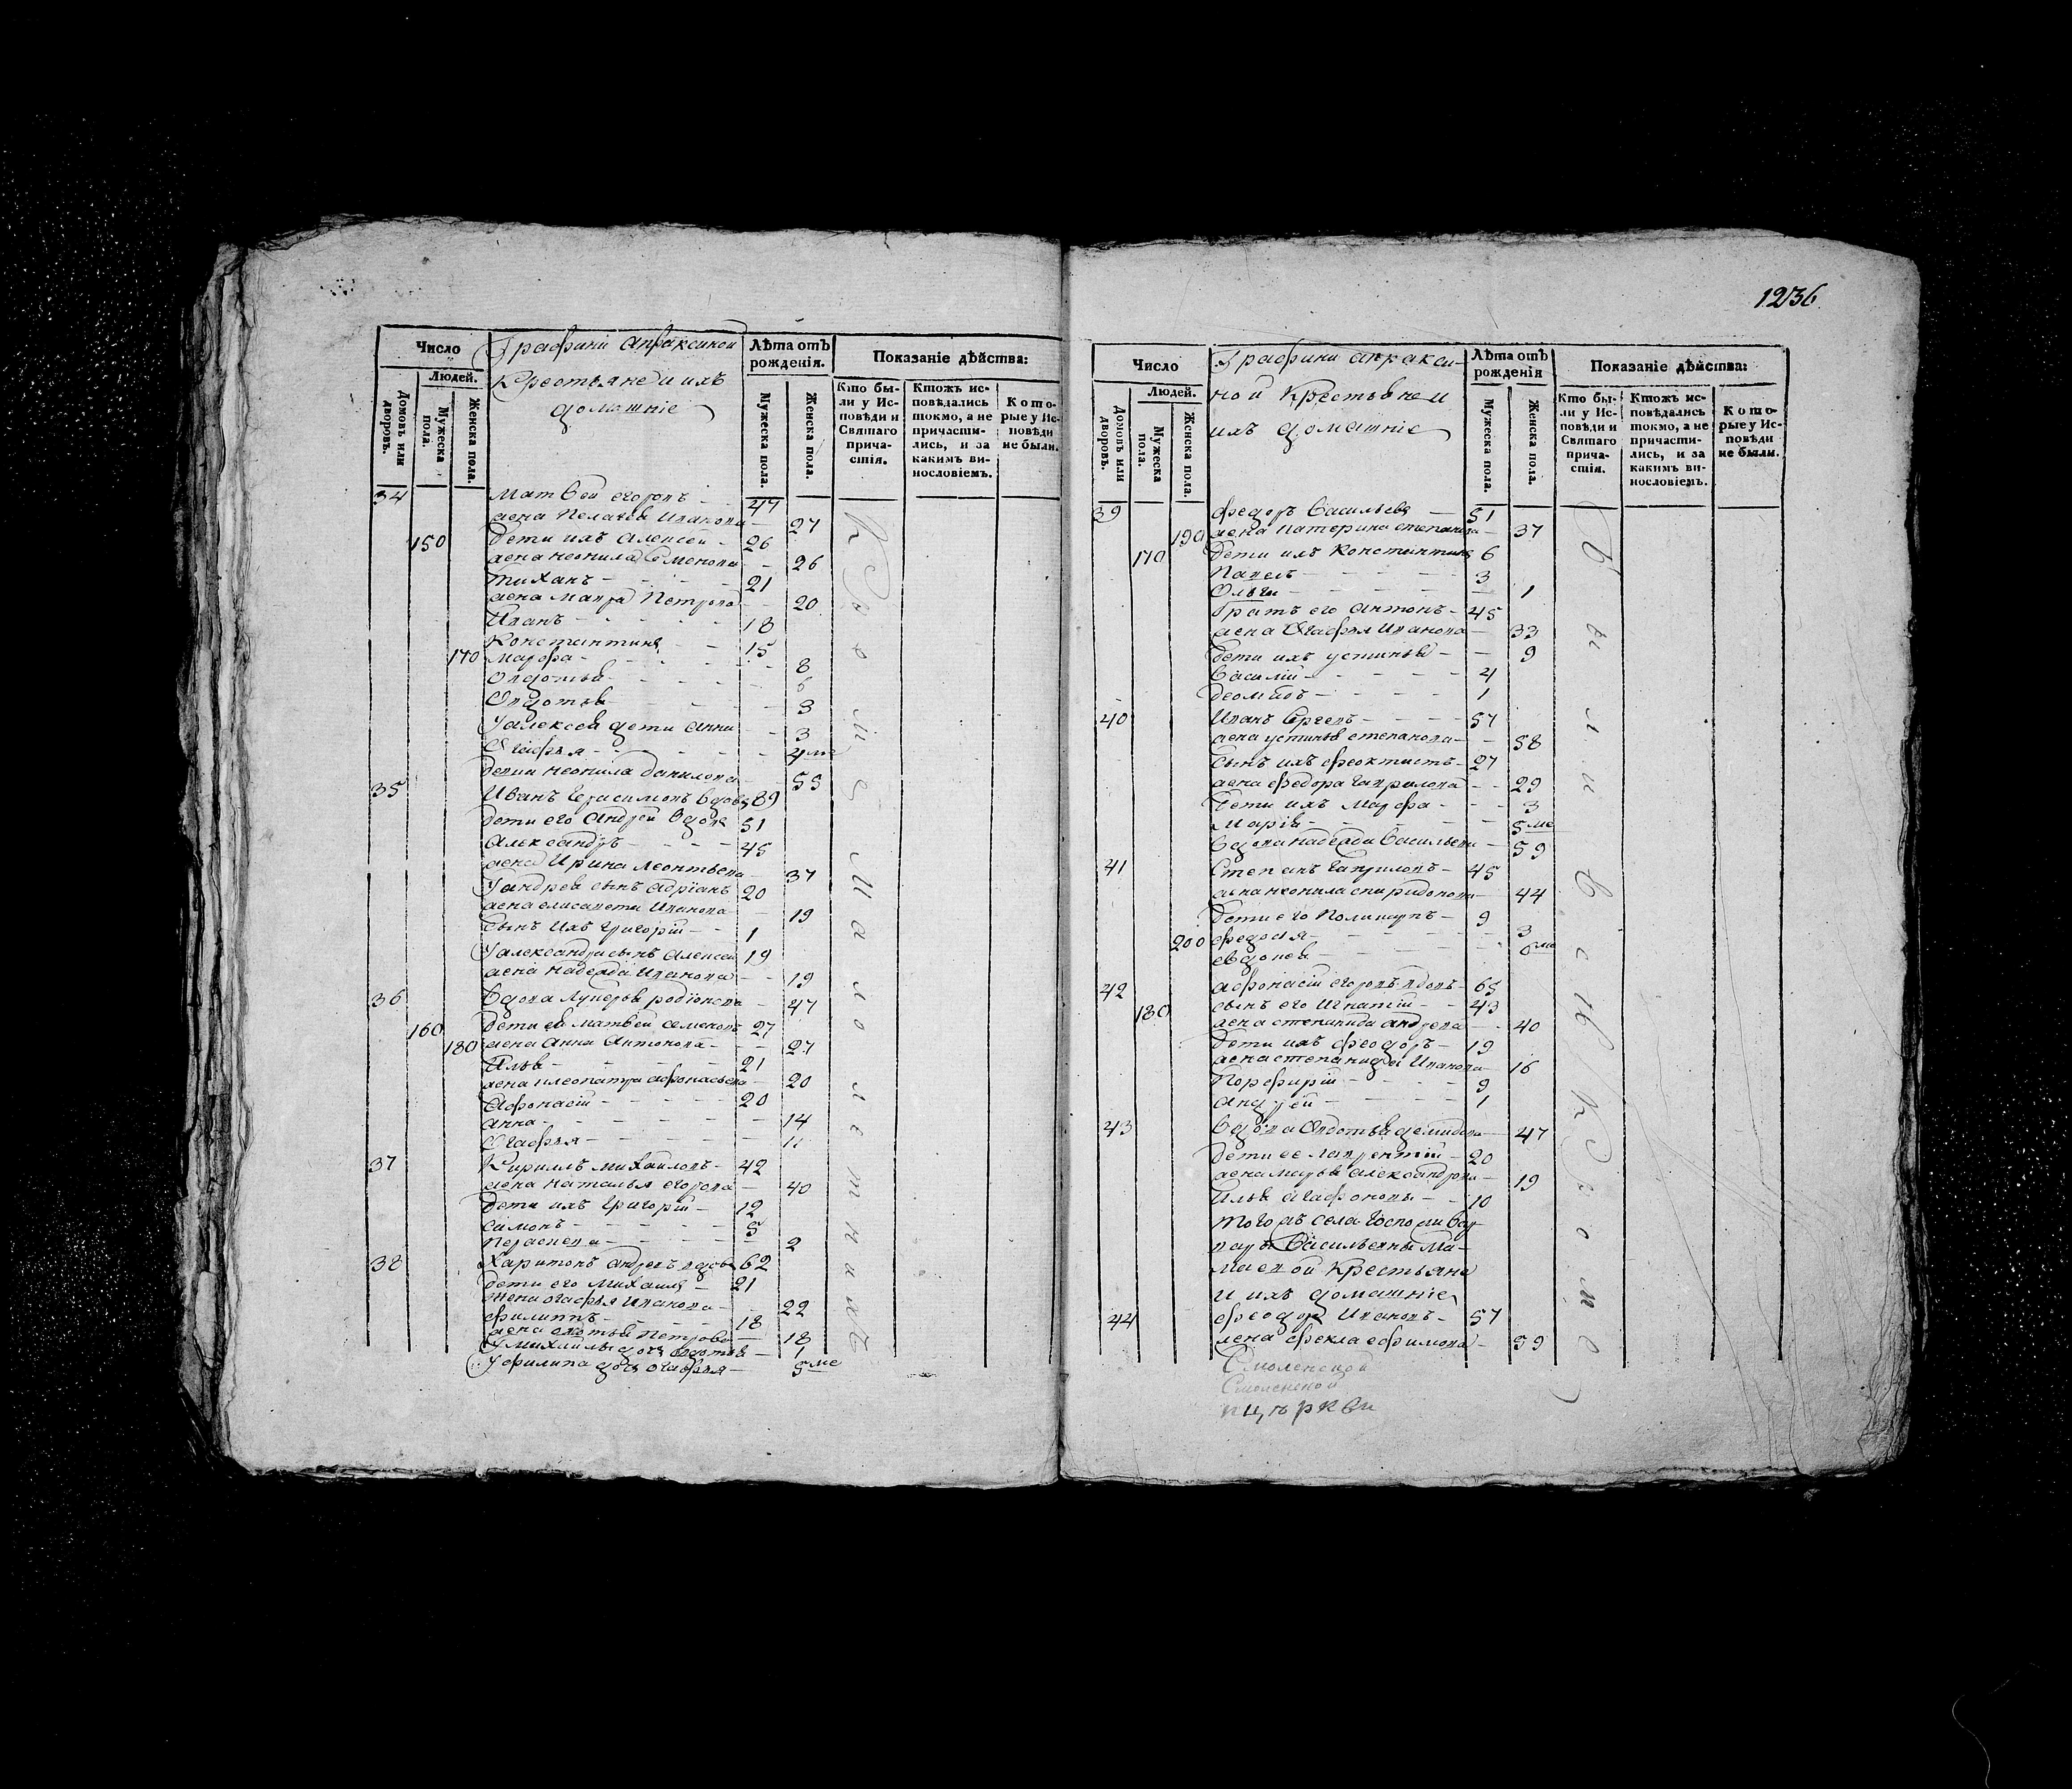 Число
Людей.
Домовъ или дворовъ.
Мужеска пола.
Женска пола.
Графини Апраксиной
Крестьяне и ихъ
домашніе
Лѣта отъ рожденія.
Мужеска пола.
Женска пола.
Показаніе дѣйства:
Кто бы-
ли у Ис-
повѣди и
Святаго
прича-
стія.
Ктожъ ис-
повѣдались
токмо, а не
причасти-
лись, и за
какимъ ви-
нословіемъ.
Кото-
рые у Ис-
повѣди
не были.
34 Матвей егоровъ 47
жена Пелагея Иванова 27
150 Дети ихъ Алексей 26
жена неонила Семенова 26
Тиханъ 21
жена Мавра Петрова 20
Иванъ 18
Константинъ 15
170 Марфа 8
Овдотья 6
Овдотья 3
У алексея дети Анна 3
Огафья 4 ме
неонила данилова 55
35 Иванъ Герасимовъ вдовъ 89
Дети его Андрей вдовъ 51
Александръ 45
жена Ирина леонтьева 37
У андрея сынъ Адріанъ 20
жена елисавета Иванова 19
Сынъ ихъ Григорій 1
У александра сынъ Алексей 19
жена надежда Иванова 19
36 Вдова Лукерья родіонова 47
160 Дети ея матвей семеновъ 27
180 жена Анна Антонова 27
Илья 21
жена клеопатра афонасьева 20
Афонасій 20
анна 14
Огафья
37 Кириллъ михаиловъ 42
жена наталья егорова 40
Дети ихъ Григорій 12
Симонъ 5
Параскева 2
38 Харитонъ андревъ вдовъ 62
Дети его Михаила 21
жена огафья Иванова 22
филиппъ 18
жена овдотья Петрова 18
У михаилы дочь овдотья 1
У филипа дочь огафья 5 ме
К р о м ѣ м а л о л е т н и х ъ
1236
Число
Людей.
Домовъ или дворовъ.
Мужеска пола.
Женска пола.
Графини апракси-
ной Крестьяне и
ихъ домашніе
Лѣта отъ рожденія
Мужеска пола.
Женска пола.
Показаніе дѣйства:
Кто бы-
ли у Ис-
повѣди и
Святаго
прича-
стія.
Ктожъ ис-
повѣдались
токмо, а не
причасти-
лись, и за
какимъ ви-
нословіемъ.
Кото-
рые у Ис-
повѣди
не были.
39 федоръ Васильевъ 51
190 жена катерина степанова 37
170 Дети ихъ Константинъ 6
Павелъ 3
Ольга 1
Братъ его антонъ 45
жена Огафья Иванова 33
Дети ихъ устинья 9
Василій 4
1
40 Иванъ Сргевъ 57
жена устинья степанова 58
Сынъ ихъ феоктистъ 27
жена федора Гаврилова 29
Дети ихъ Марфа 3
Марія 5 ме
Вдова надежда Васильева 59
41 Степанъ Гавриловъ 45
жена неонила спиридонова 44
Дети его Поликарпъ 9
200 федосья 3
6 ме
42 афонасій егоровъ вдовъ 65
180 сынъ его Игнатій 43
жена степанида андреева 40
Дети ихъ феодоръ 19
жена степанида Иванова 16
Порфирій 9
андрей 1
43 Вдова Овдотья демидова 47
Дети ее лаврентій 20
жена марья Александрова 19
Илья агафоновъ 10
Того жъ села Госпожи Вар-
вары Васильевны Ма-
маевой Крестьяне
и ихъ домашніе
44 феодоръ Ивановъ 57
жена фекла ефимова 59
Смоленской
Смоленской
церкви